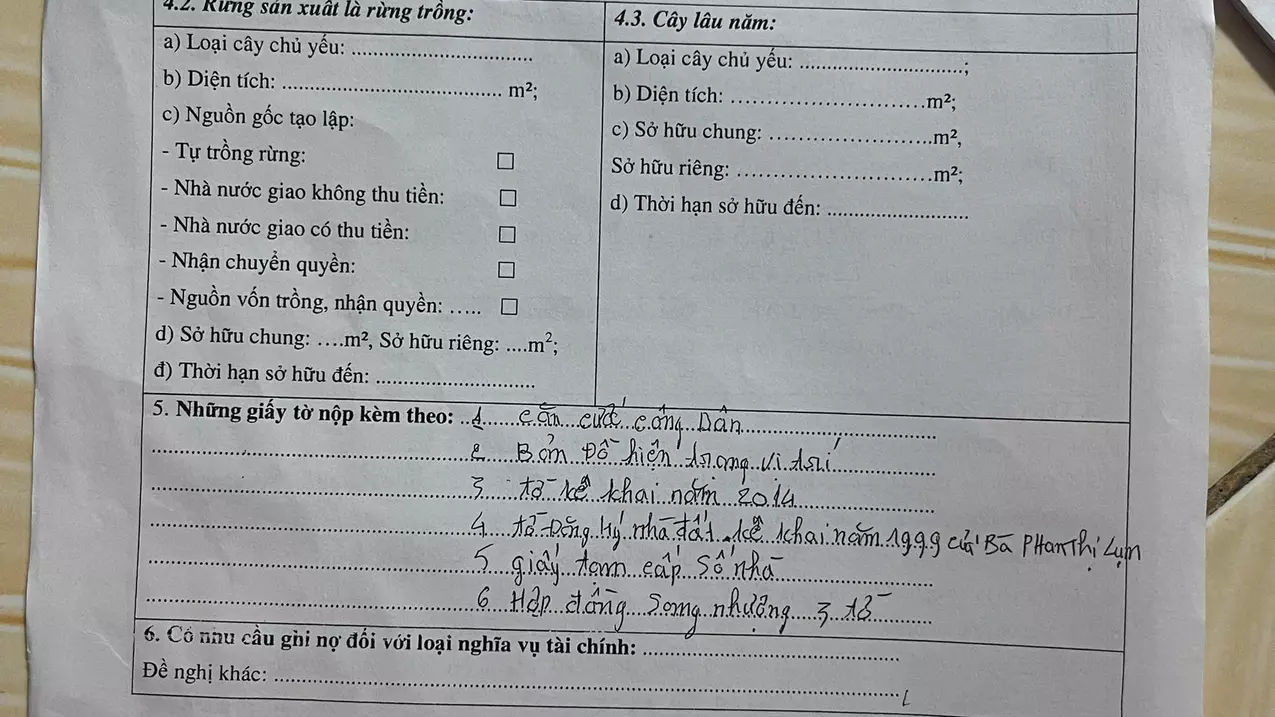 4.2. Rừng sản xuất là rừng trồng:
a) Loại cây chủ yếu: ................................
b) Diện tích: ....................................... m²;
c) Nguồn gốc tạo lập:
- Tự trồng rừng: ☐
- Nhà nước giao không thu tiền: ☐
- Nhà nước giao có thu tiền: ☐
- Nhận chuyển quyền: ☐
- Nguồn vốn trồng, nhận quyền: ..... ☐
d) Sở hữu chung: ....m², Sở hữu riêng: ....m²;
đ) Thời hạn sở hữu đến: ............................
4.3. Cây lâu năm:
a) Loại cây chủ yếu: .............................;
b) Diện tích: ...................................m²;
c) Sở hữu chung: .............................m²,
Sở hữu riêng: ..................................m²;
d) Thời hạn sở hữu đến: .........................
5. Những giấy tờ nộp kèm theo: 1 căn cước công Dân
2 Bản Đồ hiện trạng vị trí
3 tờ kê khai năm 2014
4 tờ Đăng ký nhà đất kê khai năm 1999 của Bà PHan thị Lụm
5 giấy tạm cấp số nhà
6 Hợp đồng sang nhượng 3 tờ
6. Có nhu cầu ghi nợ đối với loại nghĩa vụ tài chính: ..........................................
Đề nghị khác: ..........................................